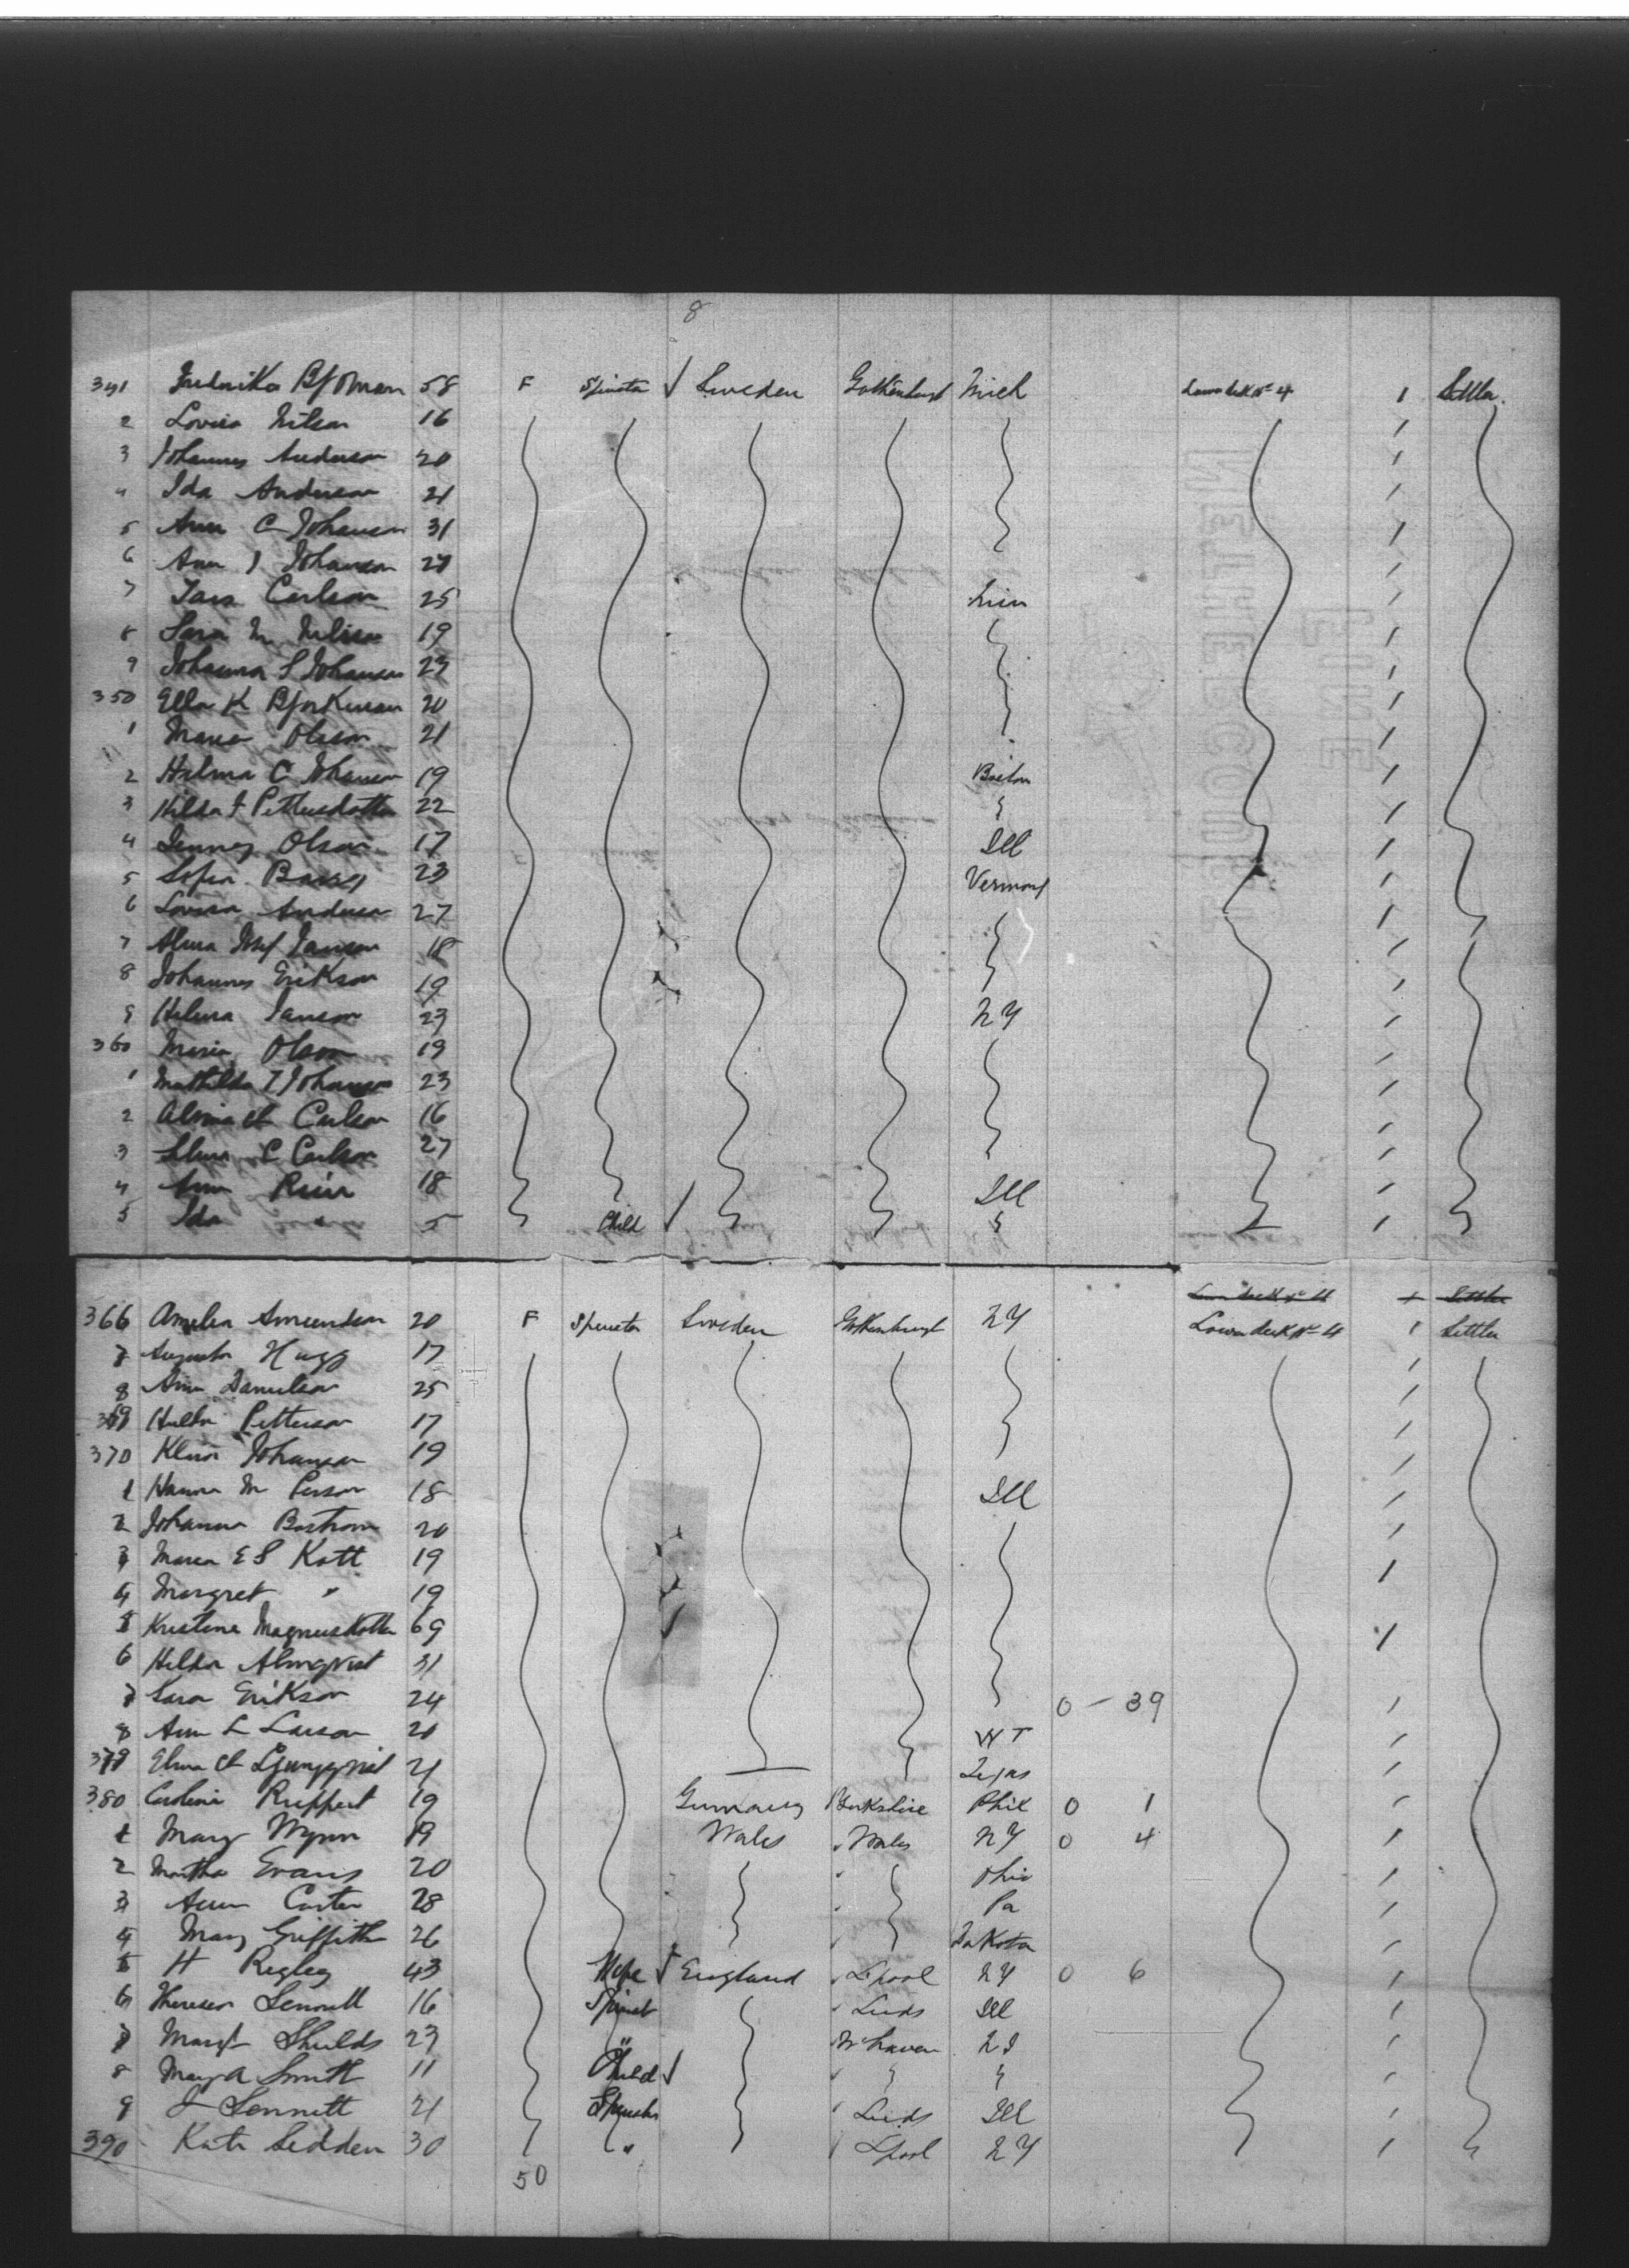 8
341 Fredrika Bjorman 58 F Spinster √ Sweden Gothenburgh Mich Lower deck No 4 1 Settler.
2 Lovisa Nilson 16 1
3 Johannes Anderson 20 1
4 Ida Anderson 21 1
5 Ann C Johanson 31 1
6 Ann J Johanson 21 1
7 Carlson 25 Minn 1
8 Sara M Nilsson 19 1
9 Johanna S Johanson 23 1
350 Ella K Bjorkman 20 1
1 Maria Olson 21 1
2 Halma C Johanson 19 Boston 1
3 Hilda F Pettersdotter 22 1
4 Jenney Olson 17 Ill 1
5 Sofia 23 Vermont 1
6 Lovisa Anderson 27 1
7 Alma Josef Janson 18 1
8 Johannes Erikson 19 1
9 Helena Janson 23 NY 1
360 Maria Olson 19 1
1 Mathilda T Johanson 23 1
2 Carlson 16 1
3 Selma C Carlson 27 1
4 Ann 18 Ill 1
5 Ida " 5 Child √ 1
Lower deck No 4 1 Settler
366 Amelia Amundson 20 F Spinster Sweden Gothenburgh NY Lower deck No 4 1 Settler
7 Augusta Hugg 17 1
8 Ann Danielson 25 1
369 Hulda Petterson 17 1
370 Johanson 19 1
1 Hanna M Person 18 Ill 1
2 Johanna Bostrom 20 1
3 Maria E S Kott 19 1
4 Margret " 19
5 Kristina Magnusdotter 69 1
6 Hilda Almqvist 31
7 Sara Erikson 24 0 - 39 1
8 Ann L Larson 20 WT 1
379 Ljungqvist 21 Texas 1
380 Carolina Ruppert 19 Germany Phil 0 1 1
1 Mary Wynn 19 Wales Wales NY 0 4 1
2 Martha Evans 20 Ohio 1
3 Ann Carter 28 Pa 1
4 Mary Griffith 26 Dakota 1
5 H Regley 43 Wife √ England L'pool NY 0 6 1
6 Theresa Sennett 16 Spinst Leeds Ill 1
7 Margt Shields 23 " 1
8 Mary A Smith 11 Child √ 1
9 J Sennett 21 Spinster Leeds Ill 1
390 Kate Sedden 30 " Lpool NY 1
50